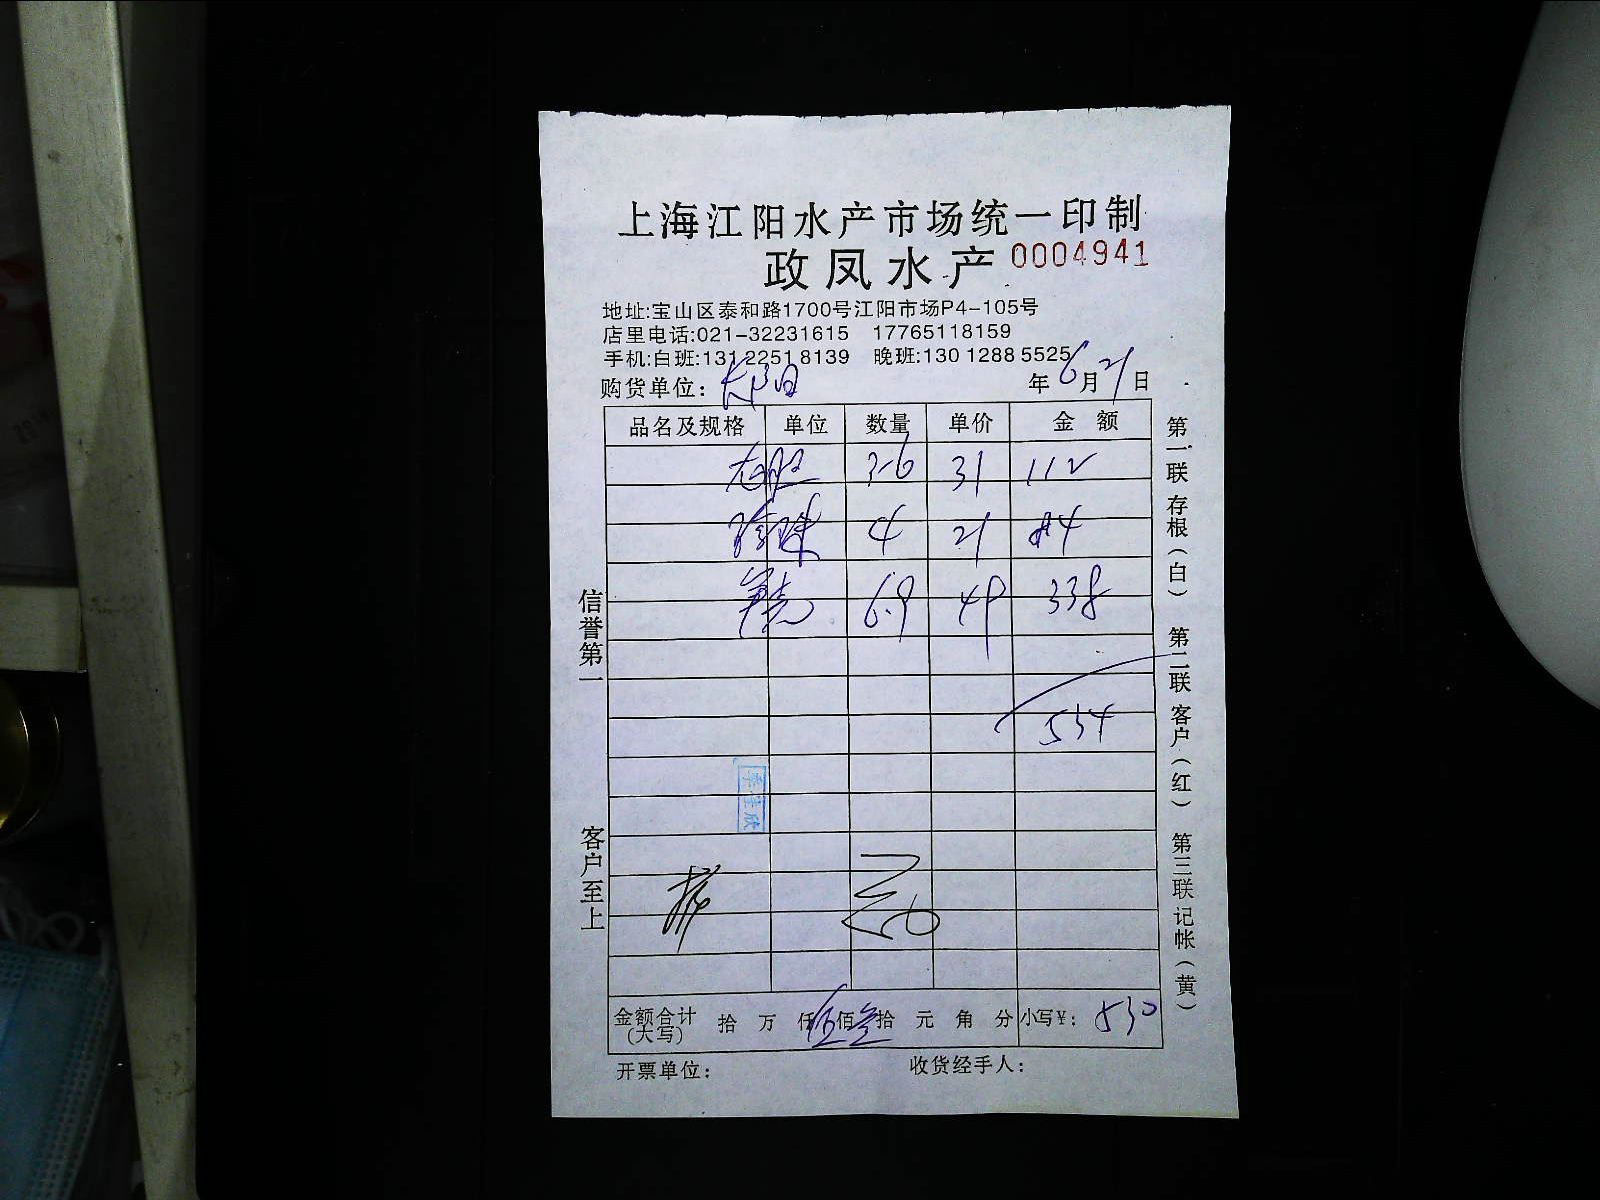 上海江阳水产市场统一印制
政凤水产 0004941
地址:宝山区泰和路1700号江阳市场P4-105号
店里电话:021-32231615 17765118159
手机:白班:131 2251 8139 晚班:130 1288 5525
购货单位: 年 6 月 21 日
品名及规格 单位 数量 单价 金 额
龙胆 3.6 31 112
珍珠 4 21 84
6.9 49 338
534
金额合计(大写) 拾 万 仟 伍 佰 叁 拾 元 角 分 小写¥: 530
开票单位: 收货经手人:
信誉第一
客户至上
第一联 存根(白) 第二联 客户(红) 第三联 记帐(黄)